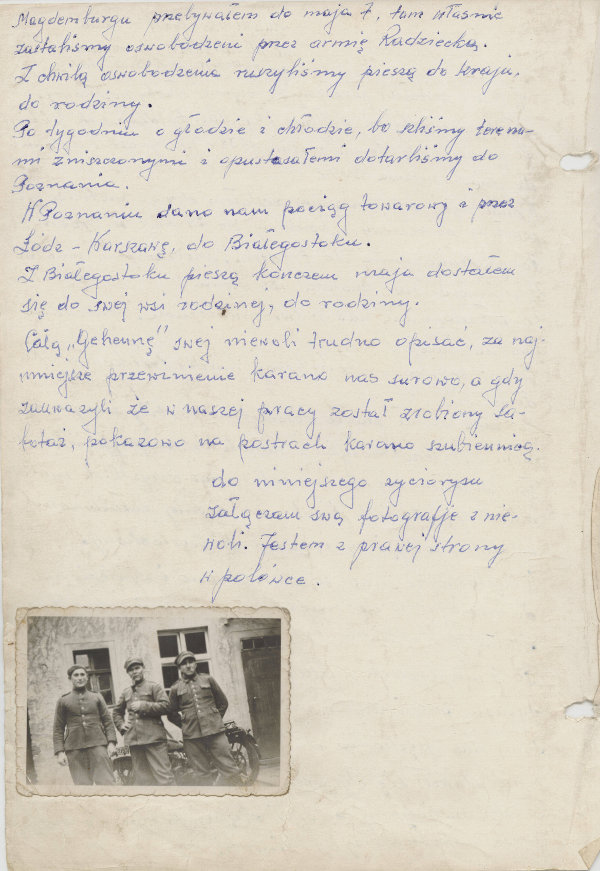 Magdemburgu przebywałem do maja 7, tam właśnie
zastaliśmy oswobodzeni przez armię Radziecką.
Z chwilą oswobodzenia ruszyliśmy pieszą do kraju,
do rodziny.
Po tygodniu o głodzie i chłodzie, bo szliśmy terena-
mi zniszczonymi i opustoszałemi dotarliśmy do
Poznania.
W Poznaniu dano nam pociąg towarowy i przez
Łódz - Warszawę, do Białegostoku.
Z Białegostoku pieszą kończem maja dostałem
się do swej wsi rodzinej, do rodziny.
Całą "Gehennę" swej niewoli trudno opisać, za naj-
mniejsze przewinienie karano nas surowo, a gdy
zauważyli że w naszej pracy został zrobiony sa-
botaż, pokazowo na postrach karano szubienicą.
do niniejszego życiorysu
załączam swą fotografje z nie-
woli. Jestem z prawej strony
w polówce.